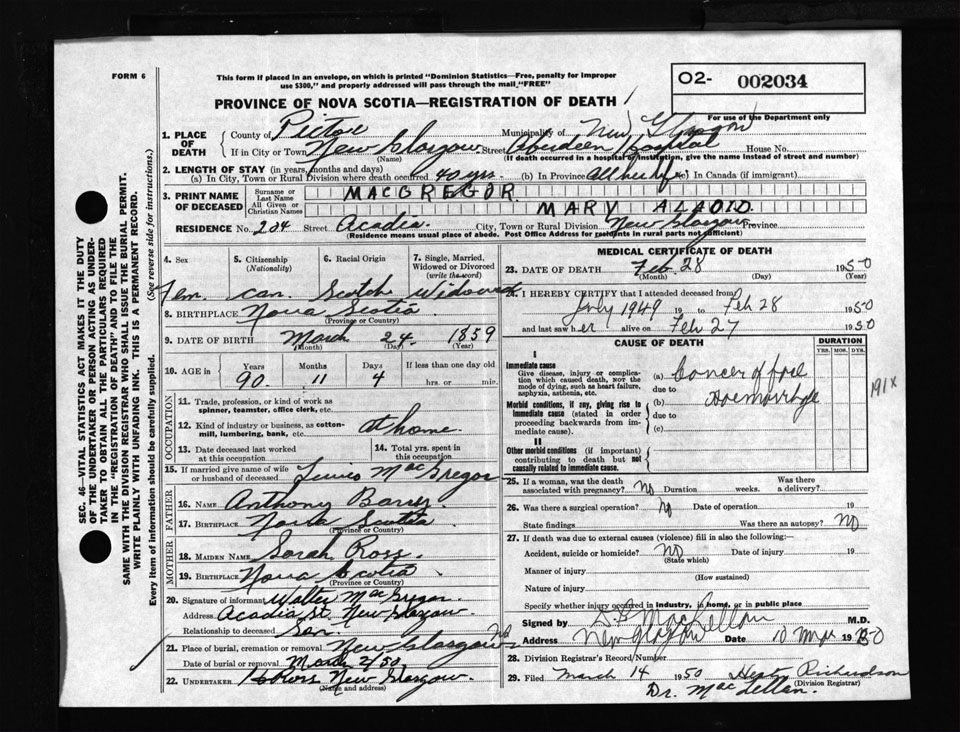 FORM 6
This form if placed in an envelope, on which is printed "Dominion Statistics—Free, penalty for improper
use $300," and properly addressed will pass through the mail "FREE"
O2- 002034
For use of the Department only
PROVINCE OF NOVA SCOTIA—REGISTRATION OF DEATH
1. PLACE OF DEATH
County of Pictou Municipality of New Glasgow
If in City or Town New Glasgow Street Aberdeen Hospital House No.
(Name) (If death occurred in a hospital or institution, give the name instead of street and number)
2. LENGTH OF STAY (in years, months and days)
(a) In City, Town or Rural Division where death occurred 40 yrs. (b) In Province All her life (c) In Canada (if immigrant)
3. PRINT NAME OF DECEASED
Surname or Last Name MACGREGOR
All Given or Christian Names MARY
RESIDENCE No. 204 Street Acadia City, Town or Rural Division New Glasgow Province
(Residence means usual place of abode. Post Office Address for residents in rural parts not sufficient)
4. Sex 5. Citizenship (Nationality) 6. Racial Origin 7. Single, Married, Widowed or Divorced (write the word)
Fem. can. Scotch Widowed
8. BIRTHPLACE Nova Scotia
(Province or Country)
9. DATE OF BIRTH March 24 1859
(Month) (Day) (Year)
10. AGE in Years Months Days If less than one day old
90 11 4 hrs. or min.
OCCUPATION
11. Trade, profession, or kind of work as spinner, teamster, office clerk, etc.
12. Kind of industry or business, as cotton-mill, lumbering, bank, etc. at home
13. Date deceased last worked at this occupation
14. Total yrs. spent in this occupation
15. If married give name of wife or husband of deceased MacGregor
FATHER
16. NAME Anthony
17. BIRTHPLACE Nova Scotia
(Province or Country)
MOTHER
18. MAIDEN NAME Sarah Ross
19. BIRTHPLACE Nova Scotia
(Province or Country)
20. Signature of informant Walter MacGregor
Address Acadia St. New Glasgow
Relationship to deceased Son
21. Place of burial, cremation or removal New Glasgow
Date of burial or removal March 2/50
22. UNDERTAKER New Glasgow
(Name and address)
MEDICAL CERTIFICATE OF DEATH
23. DATE OF DEATH Feb. 28 1950
(Month) (Day)
24. I HEREBY CERTIFY that I attended deceased from
July 1949 19 to Feb 28 1950
and last saw her alive on Feb 27 1950
CAUSE OF DEATH DURATION
YRS. MOS. DYS.
I
Immediate cause
Give disease, injury or complication which caused death, NOT the mode of dying, such as heart failure, asphyxia, asthenia, etc.
(a) Cancer of face
due to
(b) Haemorrhage
due to
(c)
191X
Morbid conditions, if any, giving rise to immediate cause (stated in order proceeding backwards from immediate cause).
II
Other morbid conditions (if important) contributing to death but not causally related to immediate cause.
25. If a woman, was the death associated with pregnancy? No Duration weeks. Was there a delivery?
26. Was there a surgical operation? No Date of operation 19
State findings Was there an autopsy? No
27. If death was due to external causes (violence) fill in also the following:—
Accident, suicide or homicide? No Date of injury 19
(State which)
Manner of injury
(How sustained)
Nature of injury
Specify whether injury occurred in industry, in home, or in public place
Signed by MacLellan M.D.
Address New Glasgow Date 10 Mar 1950
28. Division Registrar's Record Number
29. Filed March 14 1950 Richardson
(Division Registrar)
Dr. MacLellan.
SEC. 46—VITAL STATISTICS ACT MAKES IT THE DUTY
OF THE UNDERTAKER OR PERSON ACTING AS UNDER-
TAKER TO OBTAIN ALL THE PARTICULARS REQUIRED
IN THE "REGISTRATION OF DEATH" AND TO FILE THE
SAME WITH THE DIVISION REGISTRAR WHO SHALL ISSUE THE BURIAL PERMIT.
WRITE PLAINLY WITH UNFADING INK. THIS IS A PERMANENT RECORD.
Every item of information should be carefully supplied. (See reverse side for instructions.)